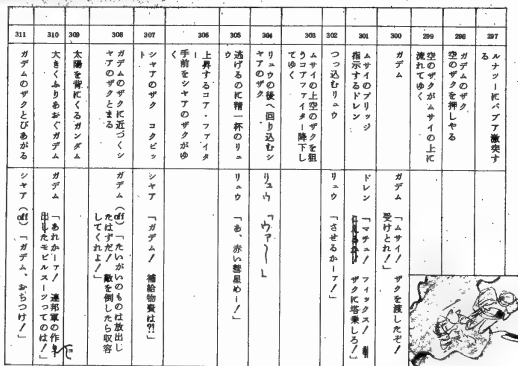 297
ルナツーにパプア激突す
る
298
ガデムのザク
空のザクを押しやる
299
空のザクがムサイの上に
流れてゆく
300
ガデム
ガデム「ムサイ! ザクを渡したぞ!
受けとれ!」
301
ムサイのブリッジ
指示するドレン
ドレン「マチュ! フィックス!
ザクに塔乗しろ!」
302
つっ込むリュウ
リュウ「させるかーァ!」
303
ムサイの上空のザクを狙
うコアファイター降下し
てゆく
304
リュウの後へ回り込むシ
ャアのザク
リュウ「ウァ〜〜」
305
逃げるのに精一杯のリュ
ウ
リュウ「あ、赤い彗星めー!」
306
上昇するコア・ファイタ
手前をシャアのザクがゆ
く
307
シャアのザク コクピッ
ト
シャア「ガデム! 補給物資は?!」
308
ガデムのザクに近づくシ
ャアのザクとまる
ガデム(off)「たいがいのものは放出し
たはずだ! 敵を倒したら収容
してくれよ!」
309
太陽を背にくるガンダム
310
大きくふりあおぐガデム
ガデム「あれかーァ! 連邦軍の作り
出したモビルスーツってのは!」
311
ガデムのザクとびあがる
シャア(off)「ガデム、おちつけ!」